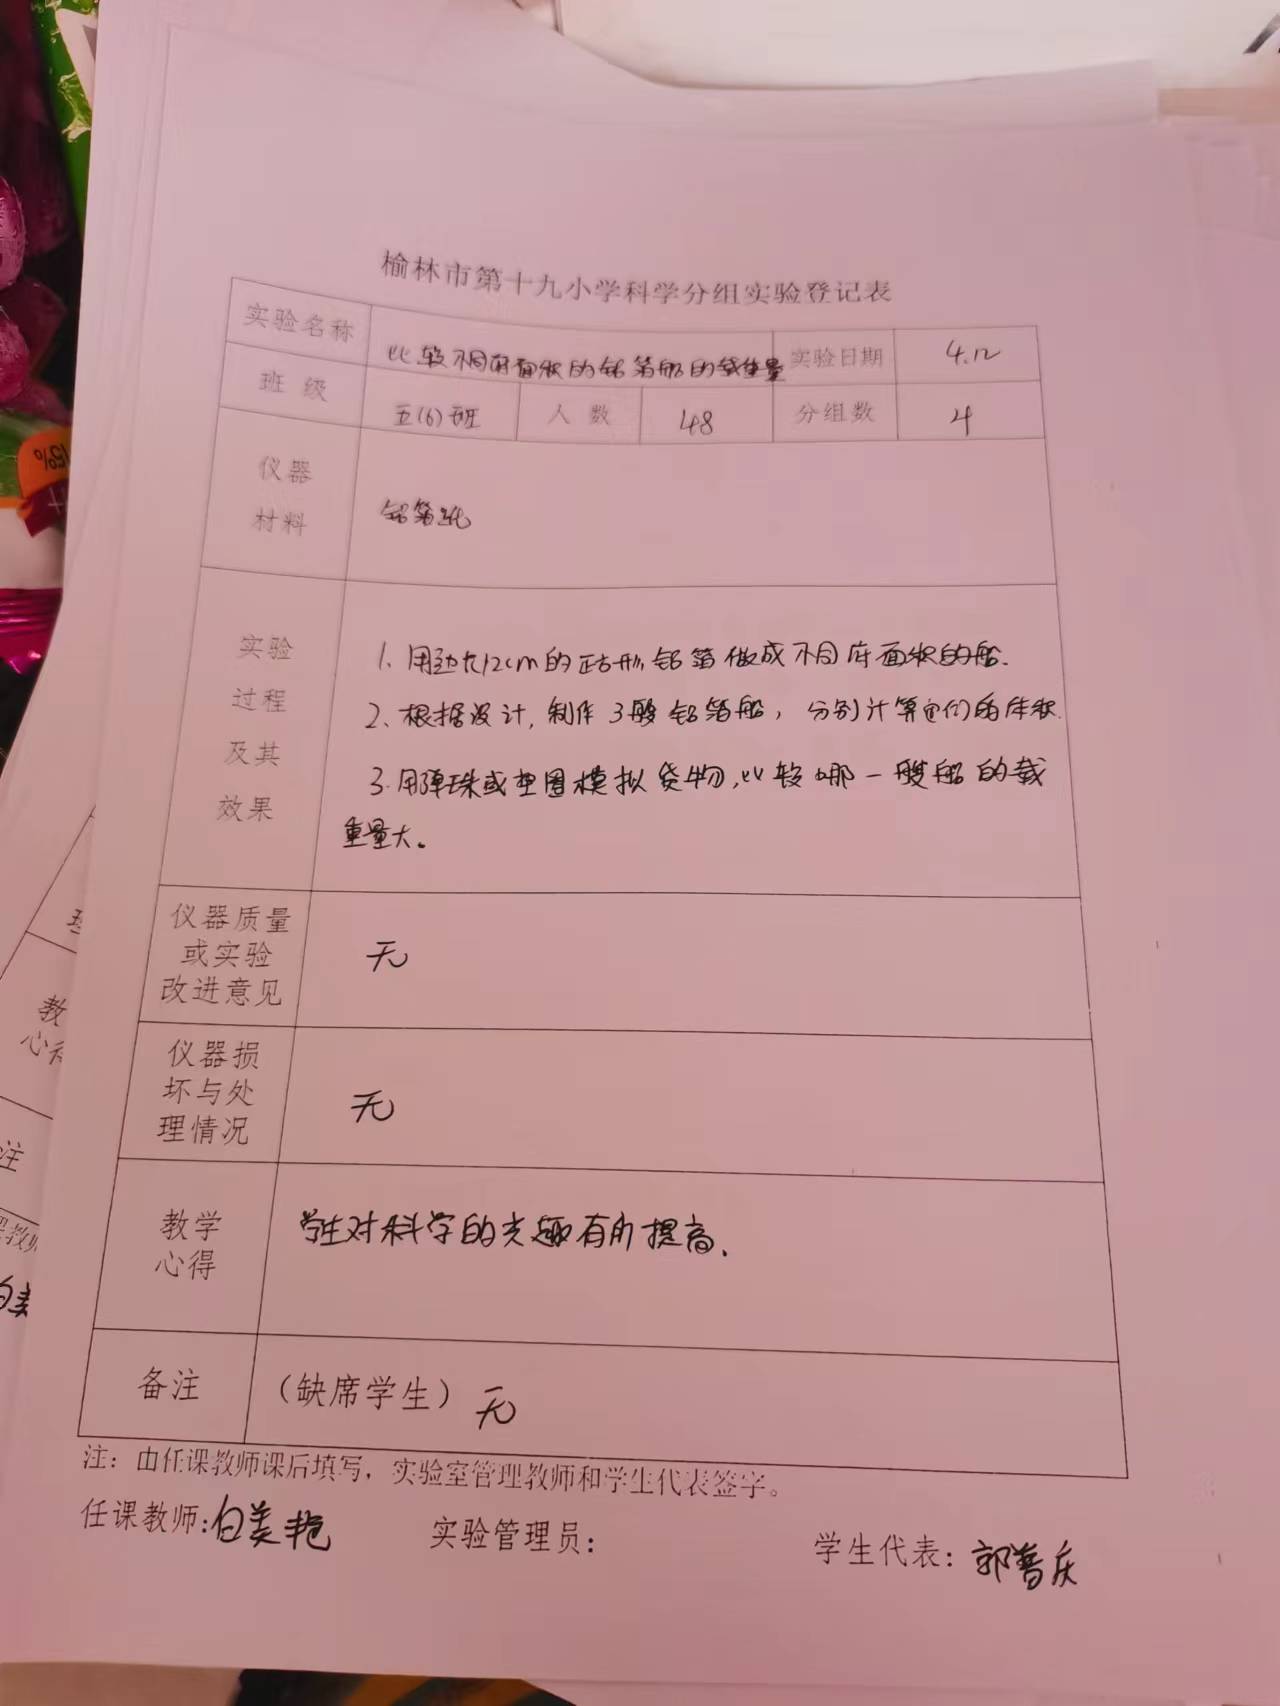 榆林市第十九小学科学分组实验登记表
实验名称 比较不同底面积的铝箔船的载重量 实验日期 4.12
班级 五(6)班 人数 48 分组数 4
仪器
材料
铝箔纸
实验
过程
及其
效果
1. 用边长12cm的正方形铝箔做成不同底面积的船.
2. 根据设计, 制作3艘铝箔船, 分别计算它们的体积.
3. 用弹珠或垫圈模拟货物, 比较哪一艘船的载
重量大。
仪器质量
或实验
改进意见
无
仪器损
坏与处
理情况
无
教学
心得
学生对科学的兴趣有所提高.
备注 (缺席学生) 无
注：由任课教师课后填写，实验室管理教师和学生代表签字。
任课教师:白美艳 实验管理员: 学生代表: 郭
教
心得
注
15%